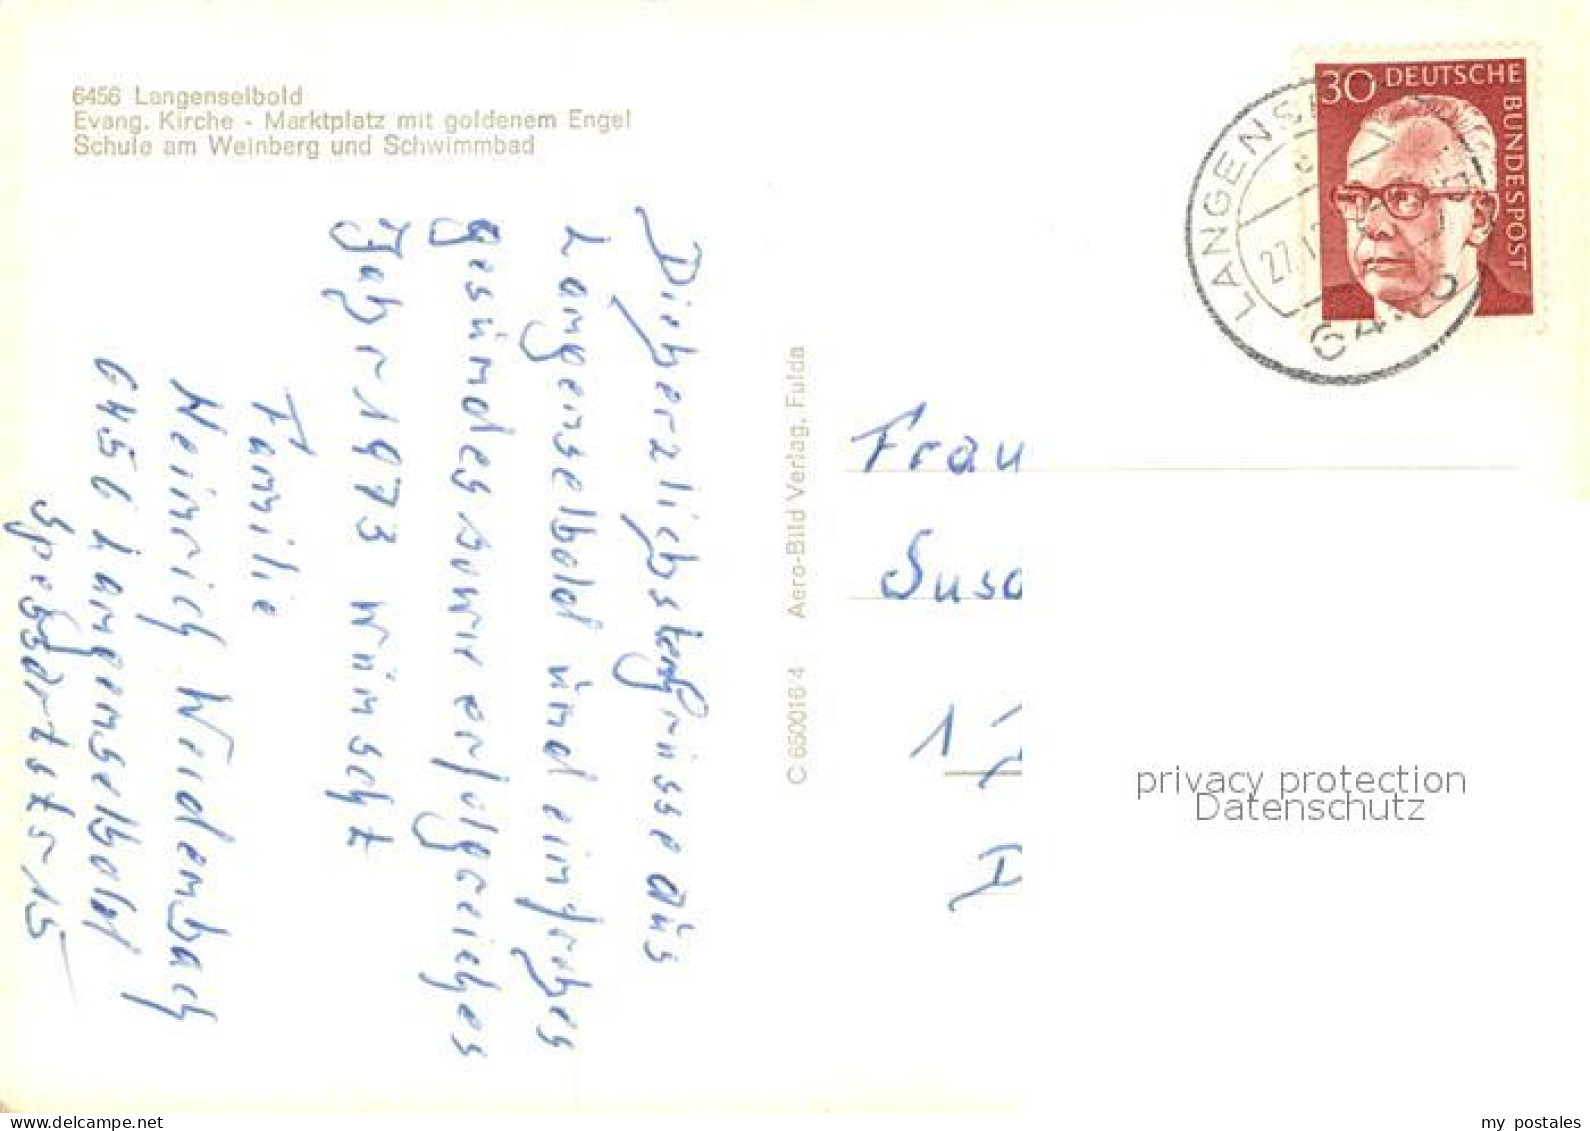 6456 Langenselbold
Evang. Kirche - Marktplatz mit goldenem Engel
Schule am Weinberg und Schwimmbad
Die herzlichsten Grüsse aus
Langenselbold und ein frohes
gesundes sowie erfolgreiches
Jahr 1973 wünscht
Familie
Heinrich Weidenbach
6456 Langenselbold
Spessartstr 15
C 650016/4 Aero-Bild Verlag, Fulda
30 DEUTSCHE
BUNDESPOST
LANGENS
27.12
Frau
Susa
1
privacy protection
Datenschutz
my postales